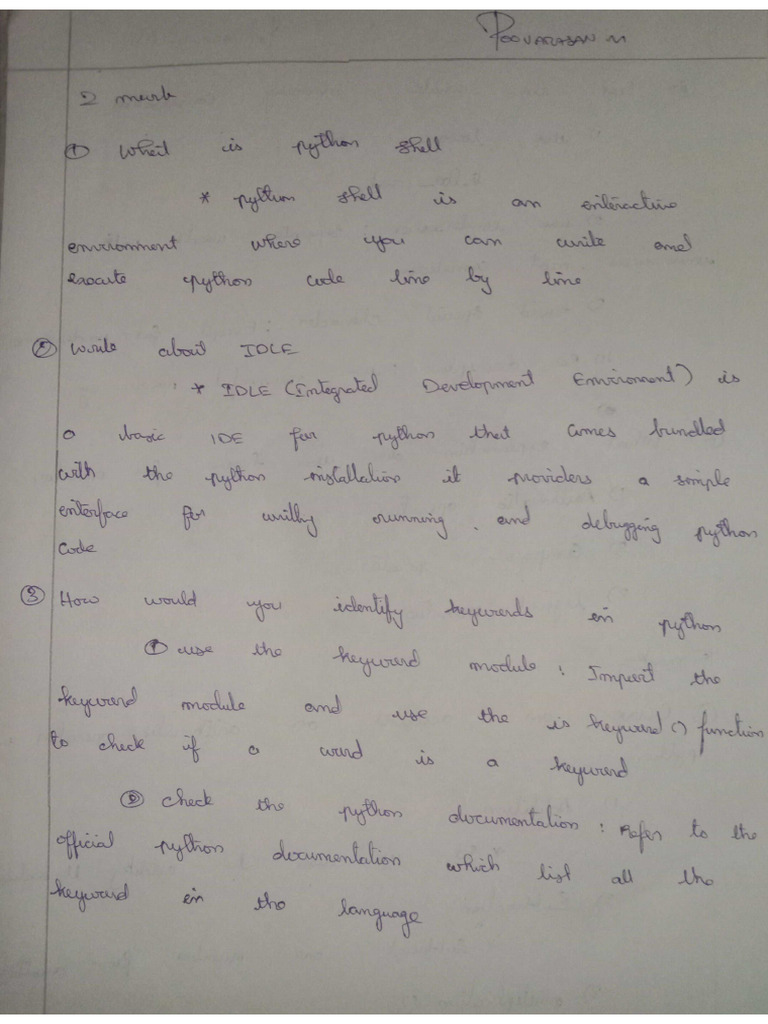 POOVARASAN M
2 mark
① What is python shell
* python shell is an interactive
environment where you can write and
execute python code line by line
② Write about IDLE
* IDLE (Integrated Development Enviroment) is
a basic IDE for python that comes bundled
with the python installation it providers a simple
interface for writing running, and debugging python
Code
③ How would you identify keywords in python
① use the keyword module: Import the
keyword module and use the is keyword() function
to check if a word is a keyword
② check the python documentation: Refer to the
official python documentation which list all the
keyword in the language